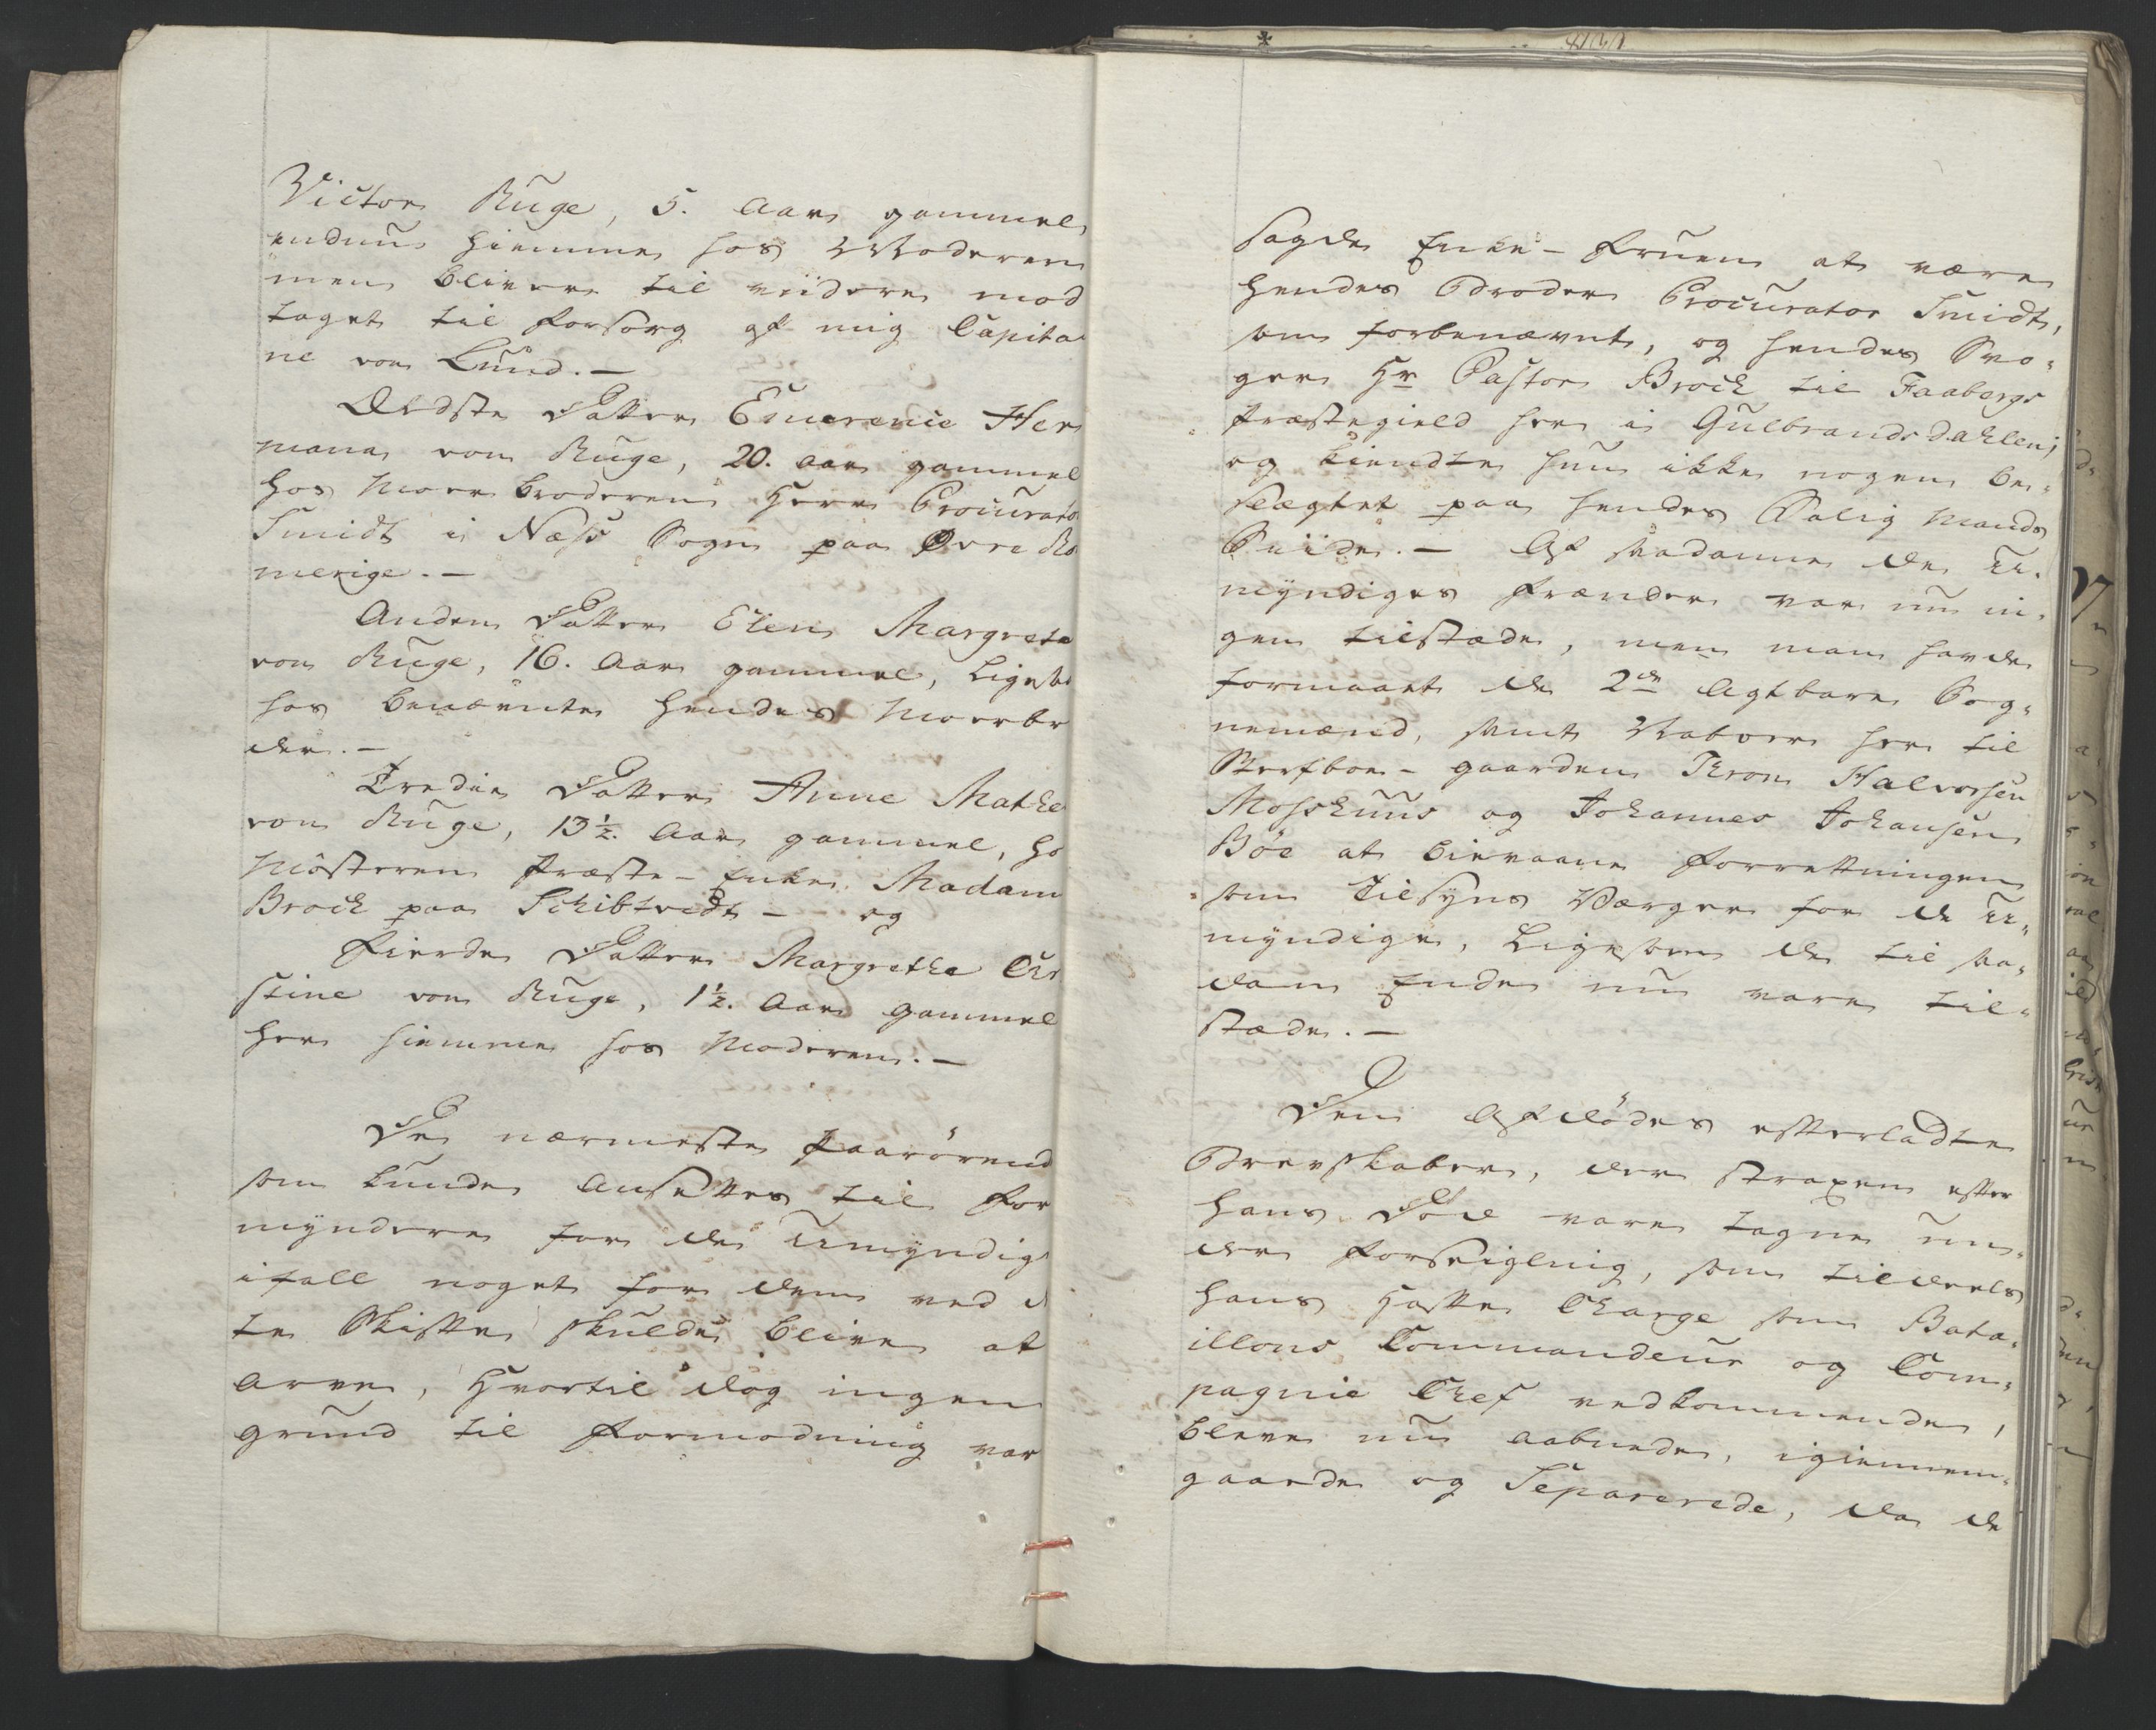 Victor Ruge, 5. Aar gammel
endnu hiemme hos Moderen
men bliver til viidere mod
taget til Forsørg af mig Capitai
ne von Lund. —
Ældste Datter Emerencie Her
mana von Ruge, 20. Aar gammel
hos Moer broderen Herr Procurato
Smidt i Næss Sogn paa Øvre Ro
merige. —
Anden Datter Elen Margrete
von Ruge, 16. Aar gammel, Ligesaa
hos benævnte hendes Moerbr
der. —
Tredie Datter Anne Mathe
von Ruge, 13½. Aar gammel, ho
Mosteren Præste-Enke Madam
Brock paa Schibtvedt — og
Fierde Datter Margrethe Chr
stine von Ruge, 1½. Aar gammel
her hiemme hos Moderen. —
De nærmeste Paarørend
som kunde Ansættes til For
myndere for de Umyndige
ifall noget for dem ved d
te Skifte skulde blive at
arve, Hvortil dog ingen
grund til Formodning var
sagde Enke-Fruen at være
hendes Broder Procurator Smidt,
som forbenævnt, og hendes Svo-
ger Hr Pastor Brock til Faabergs
Præstegield her i Gulbrandsdahlen;
og kiendte hun ikke nogen be-
slægtet paa hendes Salig Mands
Siide. — Af saadanne de U-
myndiges Frænder var nu in-
gen tilstæde, men man havde
formaaet de 2de Agtbare Sog-
nemænd, samt Naboer her til
Sterfboe-gaarden Thron Halvorsen
Mosshuus og Johannes Johansen
Bøe at bievaane Forretningen
som Tilsyns Værger for de U-
myndige, Ligesom de til saa-
dan Ende nu vare til-
stæde. —
Den Afdødes efterladte
Brevskaber, der straxen efter
hans Død vare tagne un-
der Forseigling, som tildeels
hans Hafte Charge som Bata-
illons Commandeur og Com-
pagnie Chef vedkommende,
bleve nu aabnede, igiennem-
gaaede og Separerede, da de